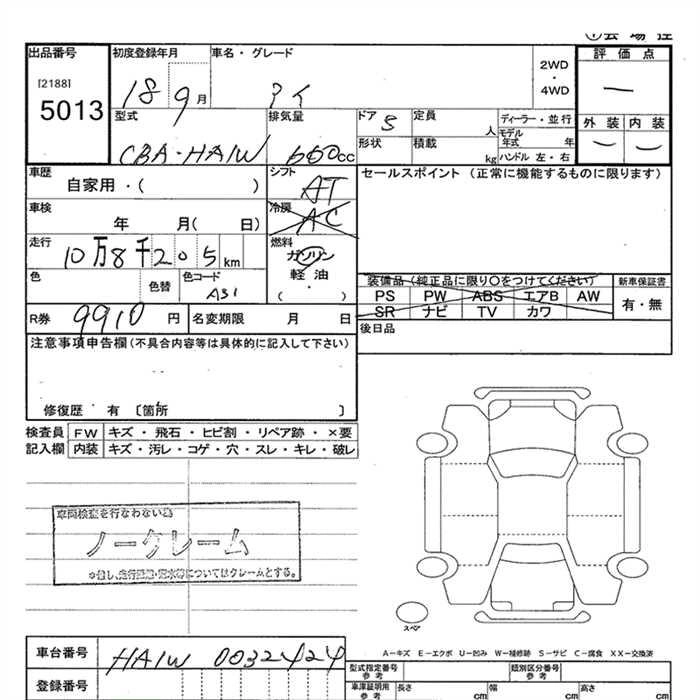 出品番号 初度登録年月 車名・グレード 評価点
[2188]
5013
18 9月 アイ 2WD ・ 4WD —
型式 排気量 ドア 5 定員 人 ディーラー・並行 外装 内装
CBA-HA1W 660cc 形状 積載 kg モデル年式 年 — —
ハンドル 左・右
車歴 シフト セールスポイント (正常に機能するものに限ります)
自家用・( ) AT
車検 冷房
年 月( 日) AC
走行 燃料
10万8千205km ガソリン
軽油
( ・ )
色 色替 色コード A31
装備品(純正品に限り○をつけてください) 新車保証書
PS PW ABS エアB AW 有・無
SR ナビ TV カワ
R券 9910円 名変期限 月 日
後日品
注意事項申告欄(不具合内容等は具体的に記入して下さい)
修復歴 有 〔箇所 〕
検査員 FW キズ・飛石・ヒビ割・リペア跡・×要
記入欄 内装 キズ・汚レ・コゲ・穴・スレ・キレ・破レ
車両検査を行なわない為
ノークレーム
スペア
A−キズ E−エクボ U−凹み W−補修跡 S−サビ C−腐食 XX−交換済
車台番号 HA1W 0032424
型式指定番号 参考 類別区分番号 参考
登録番号 車庫証明用 参考 長さ cm 幅 cm 高さ cm